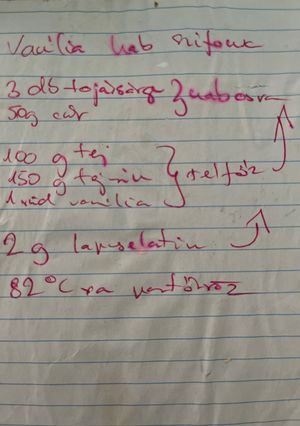 Vanília hab sifonk
3 db tojássárga } habosra
50g cukr
100 g tej
150 g tejszín } felfőz
1 rúd vanília
2 g lapzselatin
82°C ra